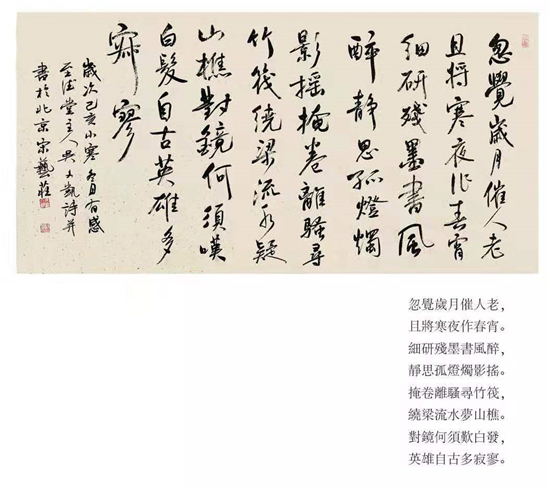 忽覺歲月催人老
且將寒夜作春宵
細研殘墨書風
醉靜思孤燈燭
影搖掩卷離騷尋
竹筏繞梁流水疑
山樵對鏡何須嘆
白髮自古英雄多
寂寥
歲次己亥小寒冬日有感
堂主人吳大凱詩并
書於北京宗藝莊
忽覺歲月催人老，
且將寒夜作春宵。
細研殘墨書風醉，
靜思孤燈燭影搖。
掩卷離騷尋竹筏，
繞梁流水夢山樵。
對鏡何須歎白發，
英雄自古多寂寥。